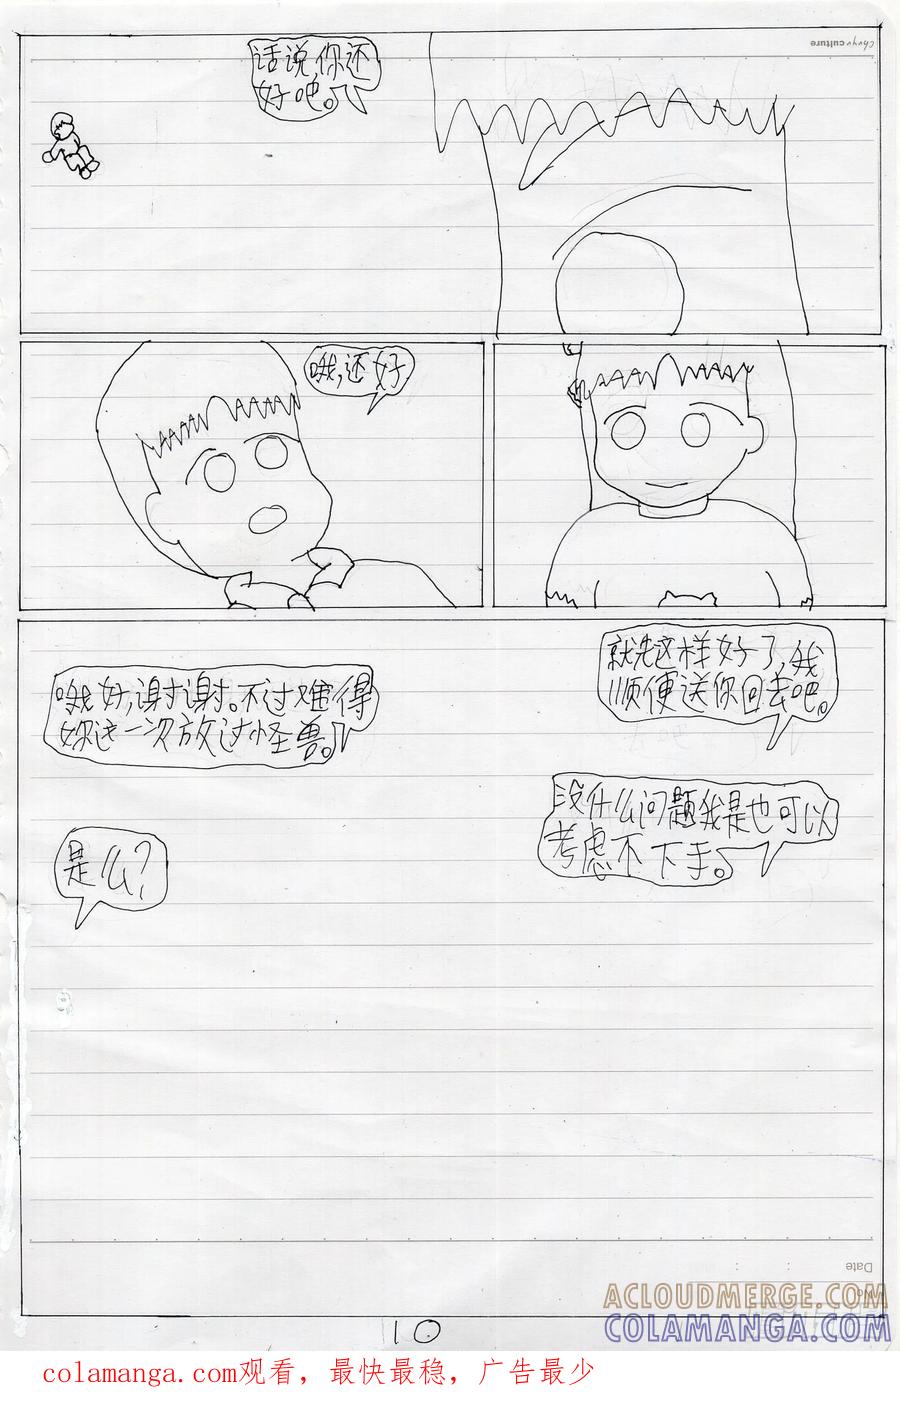 Chyu culture
话说你还
好吧。
哦,还好
就先这样好了,我
顺便送你回去吧。
哦好,谢谢。不过难得
妳这一次放过怪兽。
没什么问题我是也可以
考虑不下手。
是么?
Date
No
ACLOUDMERGE.COM
COLAMANGA.COM
10
colamanga.com观看，最快最稳，广告最少